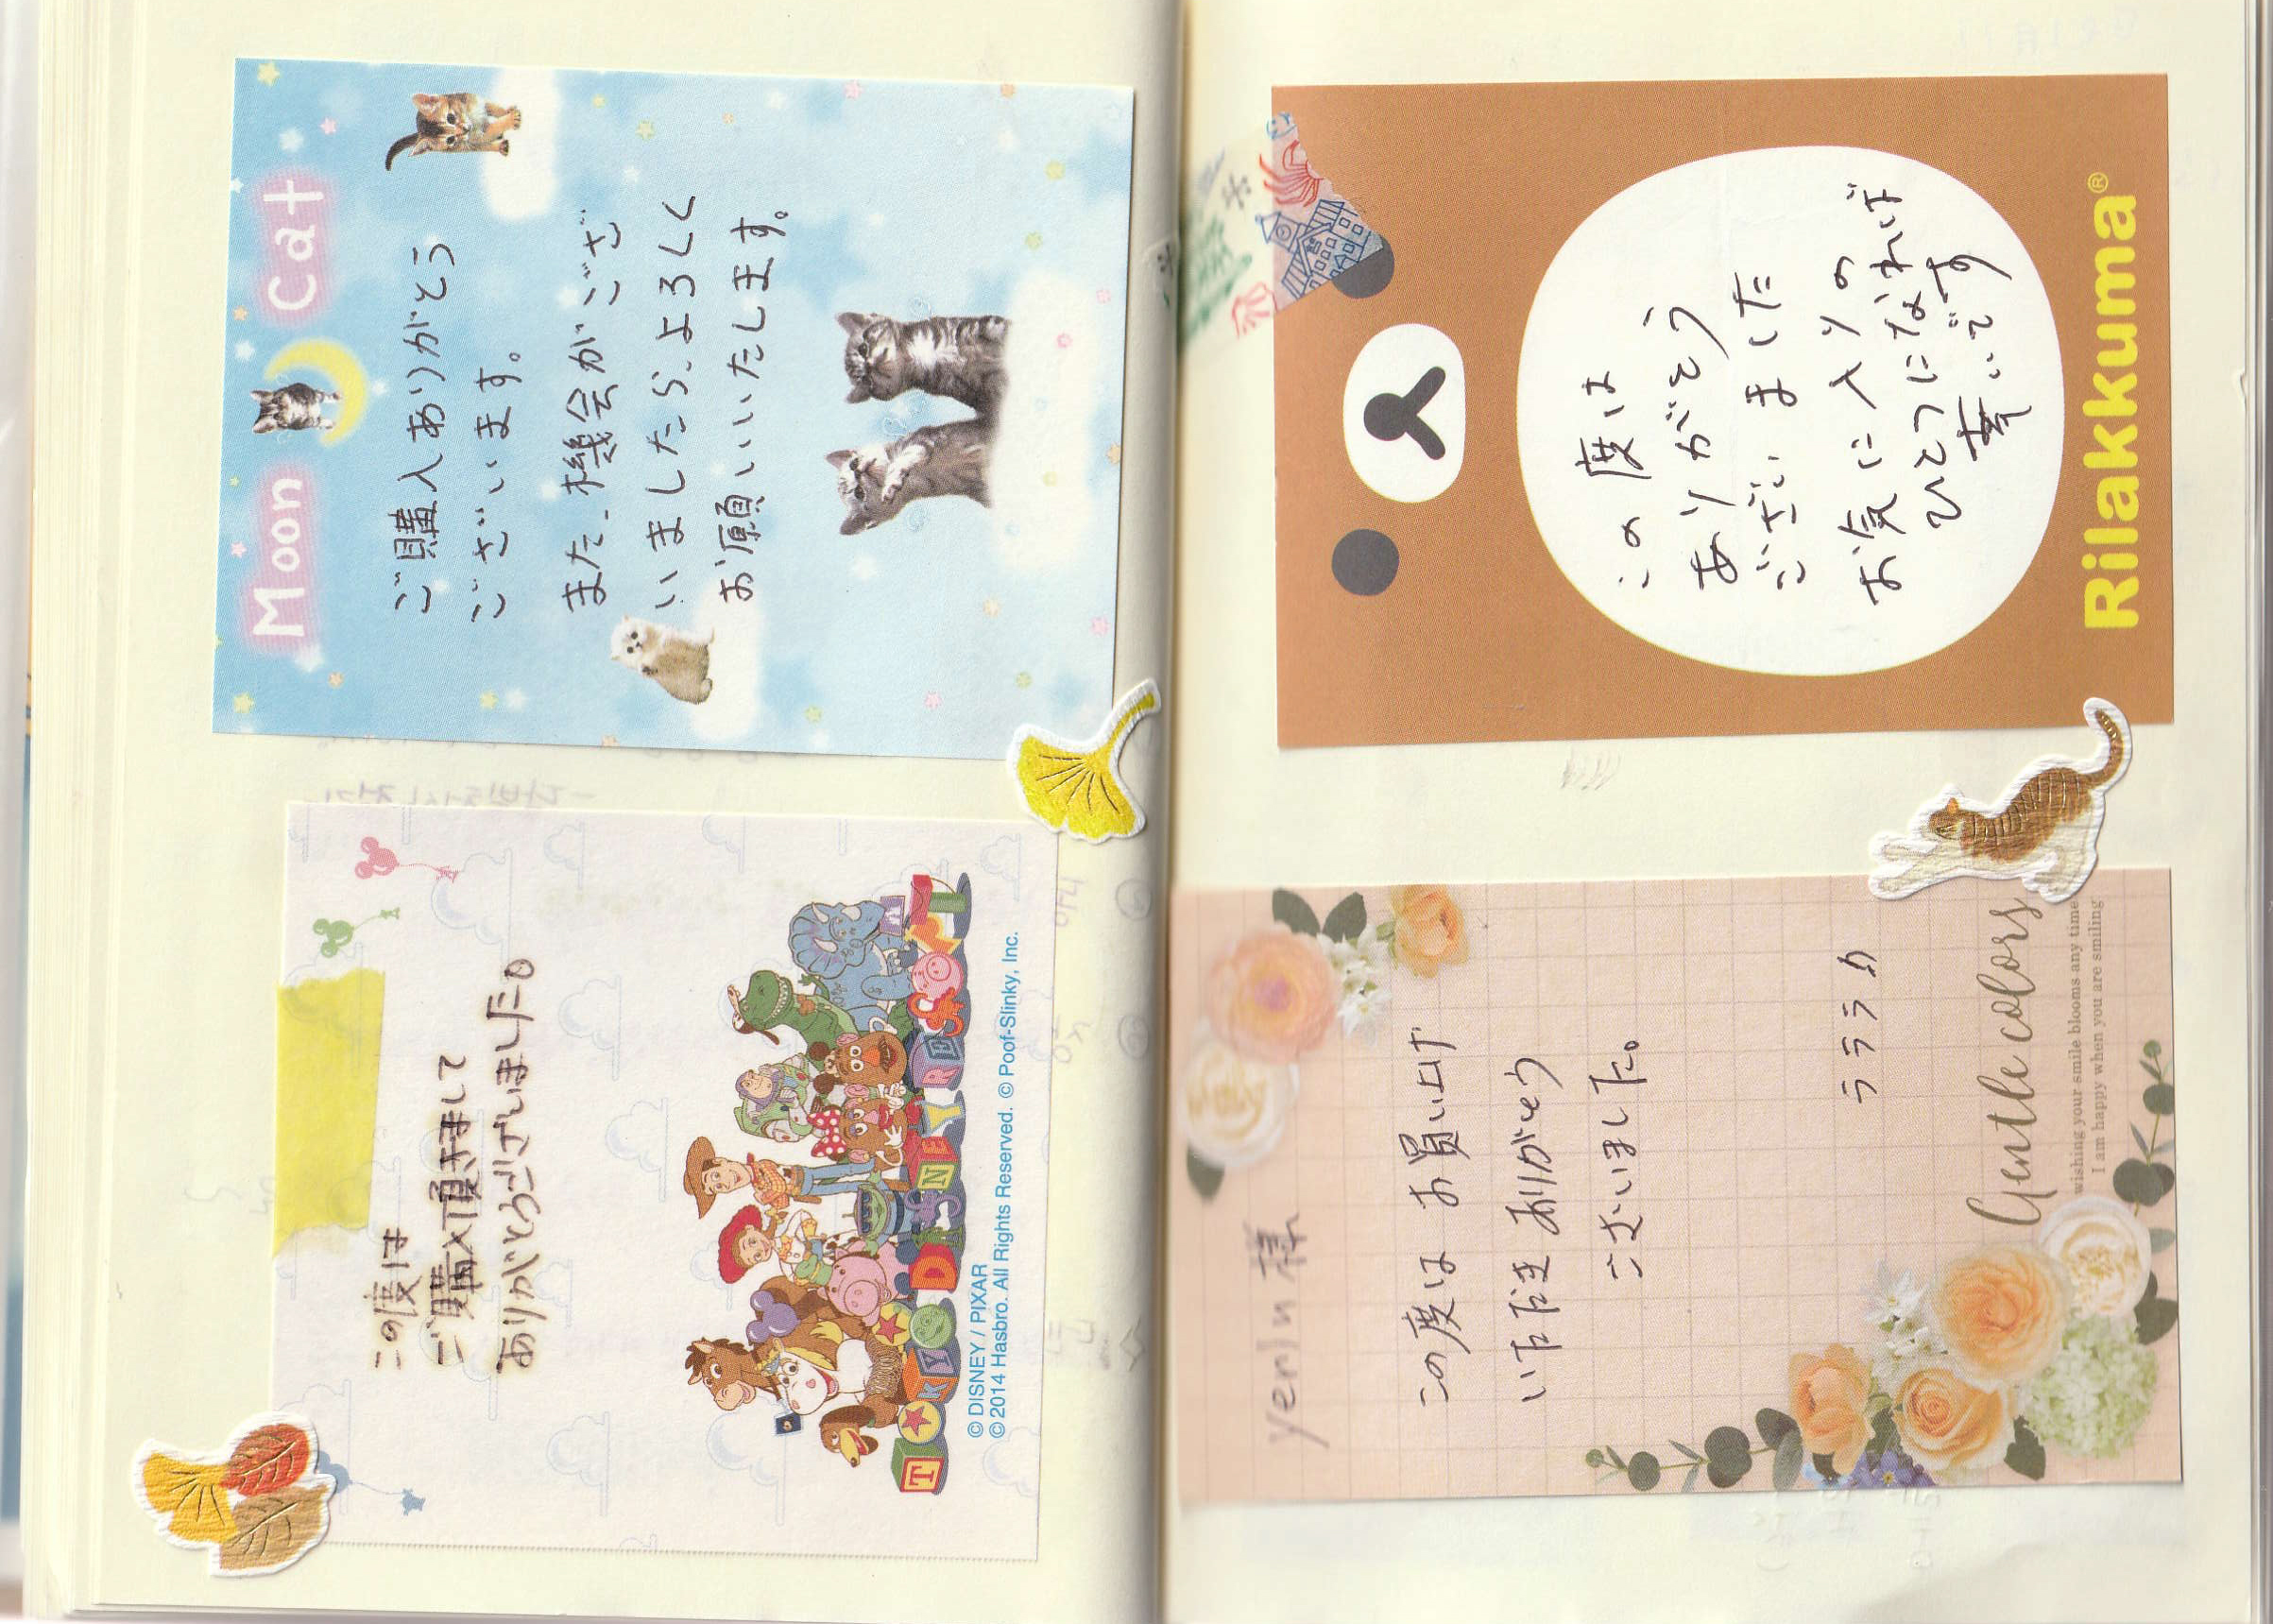 Moon Cat
ご購入ありがとう
ございます。
また、機会がござ
いましたら、よろしく
お願いいたします。
この度は
ありがとう
ございました
お気に入りの
ひとつになれば
幸いです
Rilakkuma®
この度は
ご購入頂きまして
ありがとうございました。
TOKYO DISNEY RESORT
© DISNEY / PIXAR
© 2014 Hasbro. All Rights Reserved. © Poof-Slinky, Inc.
様
この度は お買い上げ
いただき ありがとう
ございました。
ラララク
Gentle colors
wishing your smile blooms any time
I am happy when you are smiling